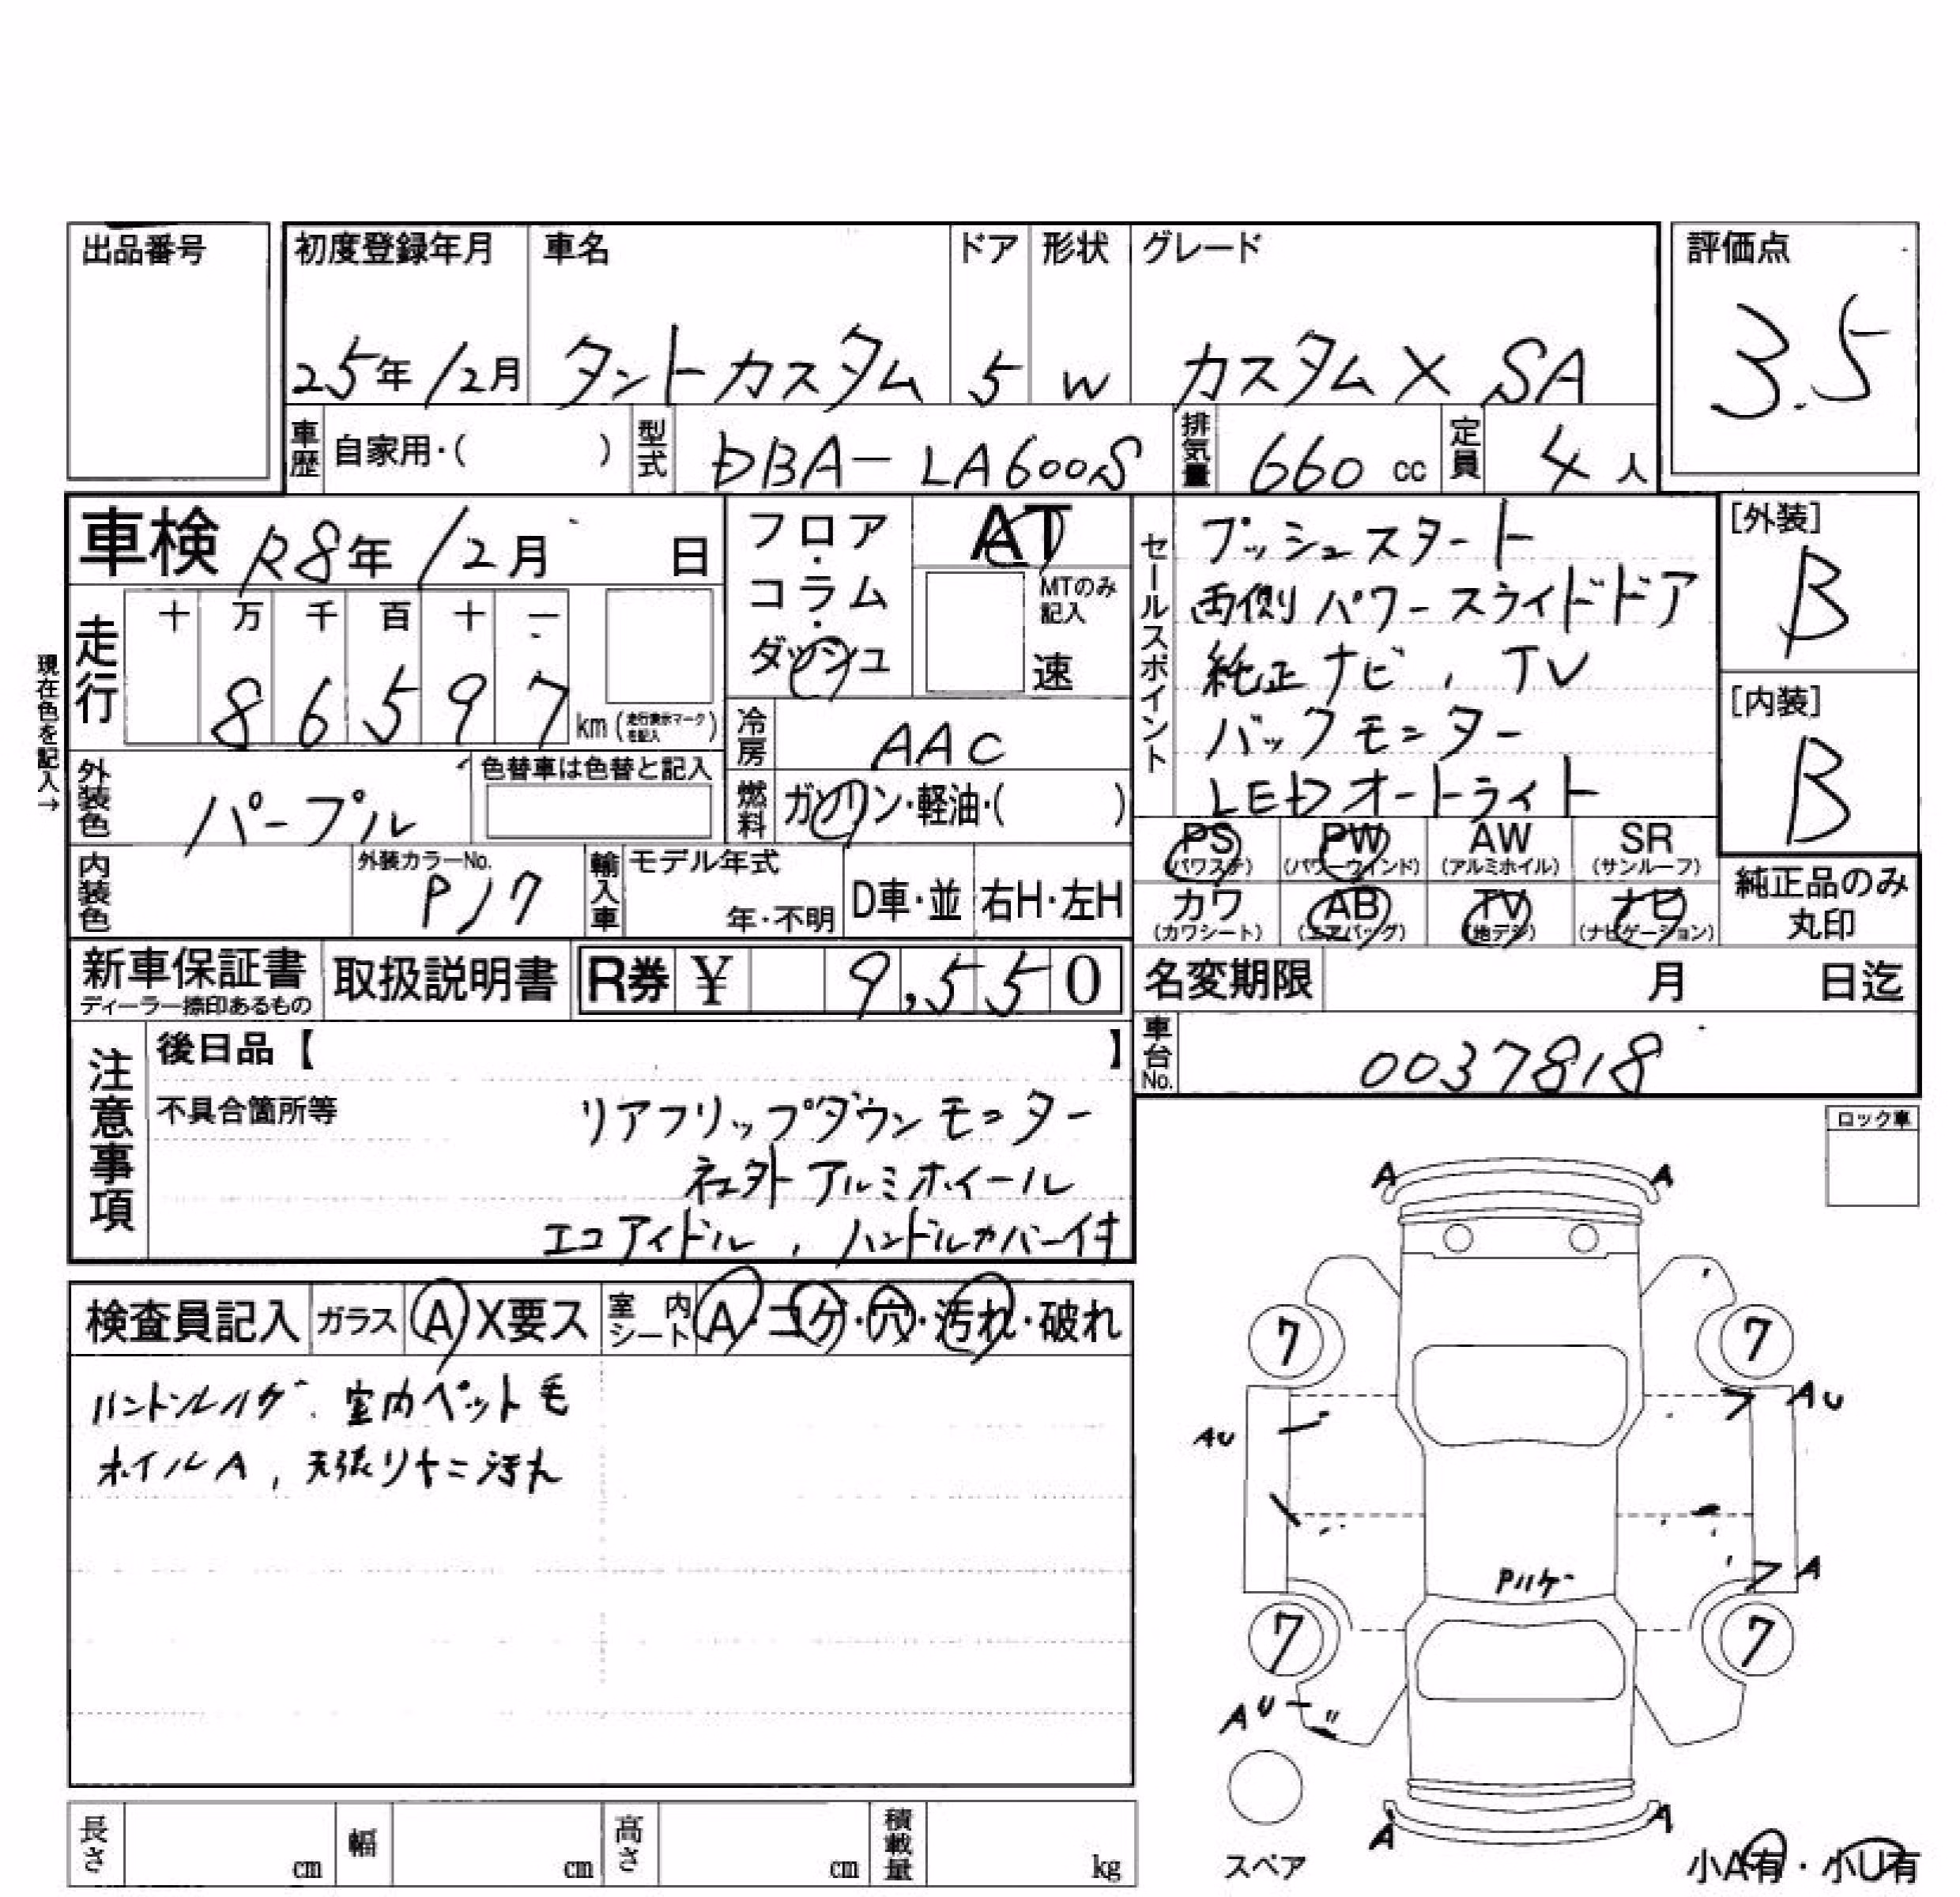 出品番号
初度登録年月 車名 ドア 形状 グレード 評価点
25年12月 タントカスタム 5 W カスタムX SA 3.5
車歴 自家用・( ) 型式 DBA-LA600S 排気量 660 cc 定員 4人
車検 R8年12月 日
フロア・コラム・ダッシュ
AT
MTのみ記入
速
走行 十 万 千 百 十 一
86597 km (走行表示マークを記入)
現在色を記入→
外装色 パープル 色替車は色替と記入
冷房 AAC
燃料 ガソリン・軽油・( )
内装色 外装カラーNo. P17 輸入車 モデル年式 年・不明 D車・並 右H・左H
セールスポイント
プッシュスタート
両側パワースライドドア
純正ナビ, TV
バックモニター
LEDオートライト
[外装]
B
[内装]
B
PS PW AW SR
(パワステ) (パワーウィンド) (アルミホイル) (サンルーフ)
カワ AB TV ナビ
(カワシート) (エアバッグ) (地デジ) (ナビゲーション)
純正品のみ
丸印
新車保証書 取扱説明書 R券 ¥ 9,550
ディーラー捺印あるもの
名変期限 月 日迄
車台No. 0037818
注意事項
後日品【 】
不具合箇所等 リアフリップダウンモニター
社外アルミホイール
エコアイドル, ハンドルカバー付
検査員記入 ガラス A・X要ス 室内シート A・コゲ・穴・汚れ・破れ
ハンドルハゲ. 室内ペット毛
ホイルA, 天張りヤニ汚れ
ロック車
A A
7 7
AU AU
Pハゲ
A
7 7
AU
A A
スペア
小A有・小U有
長さ cm 幅 cm 高さ cm 積載量 kg